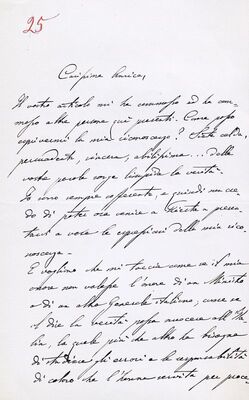 25
Carissima Amica,
Il vostro articolo mi ha commosso ed ha com-
mosso altre persone qui presenti. Come posso
esprimervi la mia riconoscenza? Siete calda,
persuadente, sincera, abilissima... dalla
vostra parola sorge limpida la verità.
Io sono sempre sofferente, e quindi non cre-
do di poter ora venire a presen-
tarvi a voce le espressioni della mia rico-
noscenza.
E vogliono che mi taccia come se il mio
onore non valesse l'onore di un Ministro
o di un altro Generale italiano, come se
il dire la verità possa nuocere all'Ita-
lia, la quale più che altro ha bisogno
di studiare gli errori e le responsabilità
di coloro che l'hanno servita per